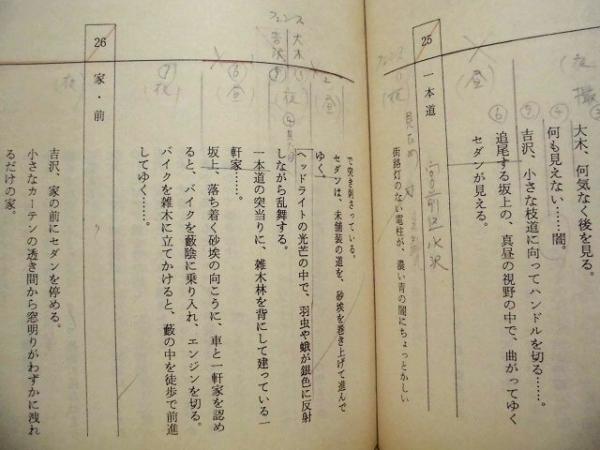 大木、何気なく後を見る。
何も見えない……闇。
吉沢、小さな枝道に向ってハンドルを切る……。
追尾する坂上の、真昼の視野の中で、曲がってゆく
セダンが見える。
25 一本道
街路灯のない電柱が、濃い青の闇にちょっとかしい
で突き刺さっている。
セダンは、未舗装の道を、砂埃を巻き上げて進んで
ゆく。
ヘッドライトの光芒の中で、羽虫や蛾が銀色に反射
しながら乱舞する。
一本道の突当りに、雑木林を背にして建っている一
軒家……。
坂上、落ち着く砂埃の向こうに、車と一軒家を認め
ると、バイクを藪陰に乗り入れ、エンジンを切る。
バイクを雑木に立てかけると、藪の中を徒歩で前進
してゆく……。
26 家・前
吉沢、家の前にセダンを停める。
小さなカーテンの透き間から窓明りがわずかに洩れ
るだけの家。
フェンス
大木
吉沢
(夜)
(昼)